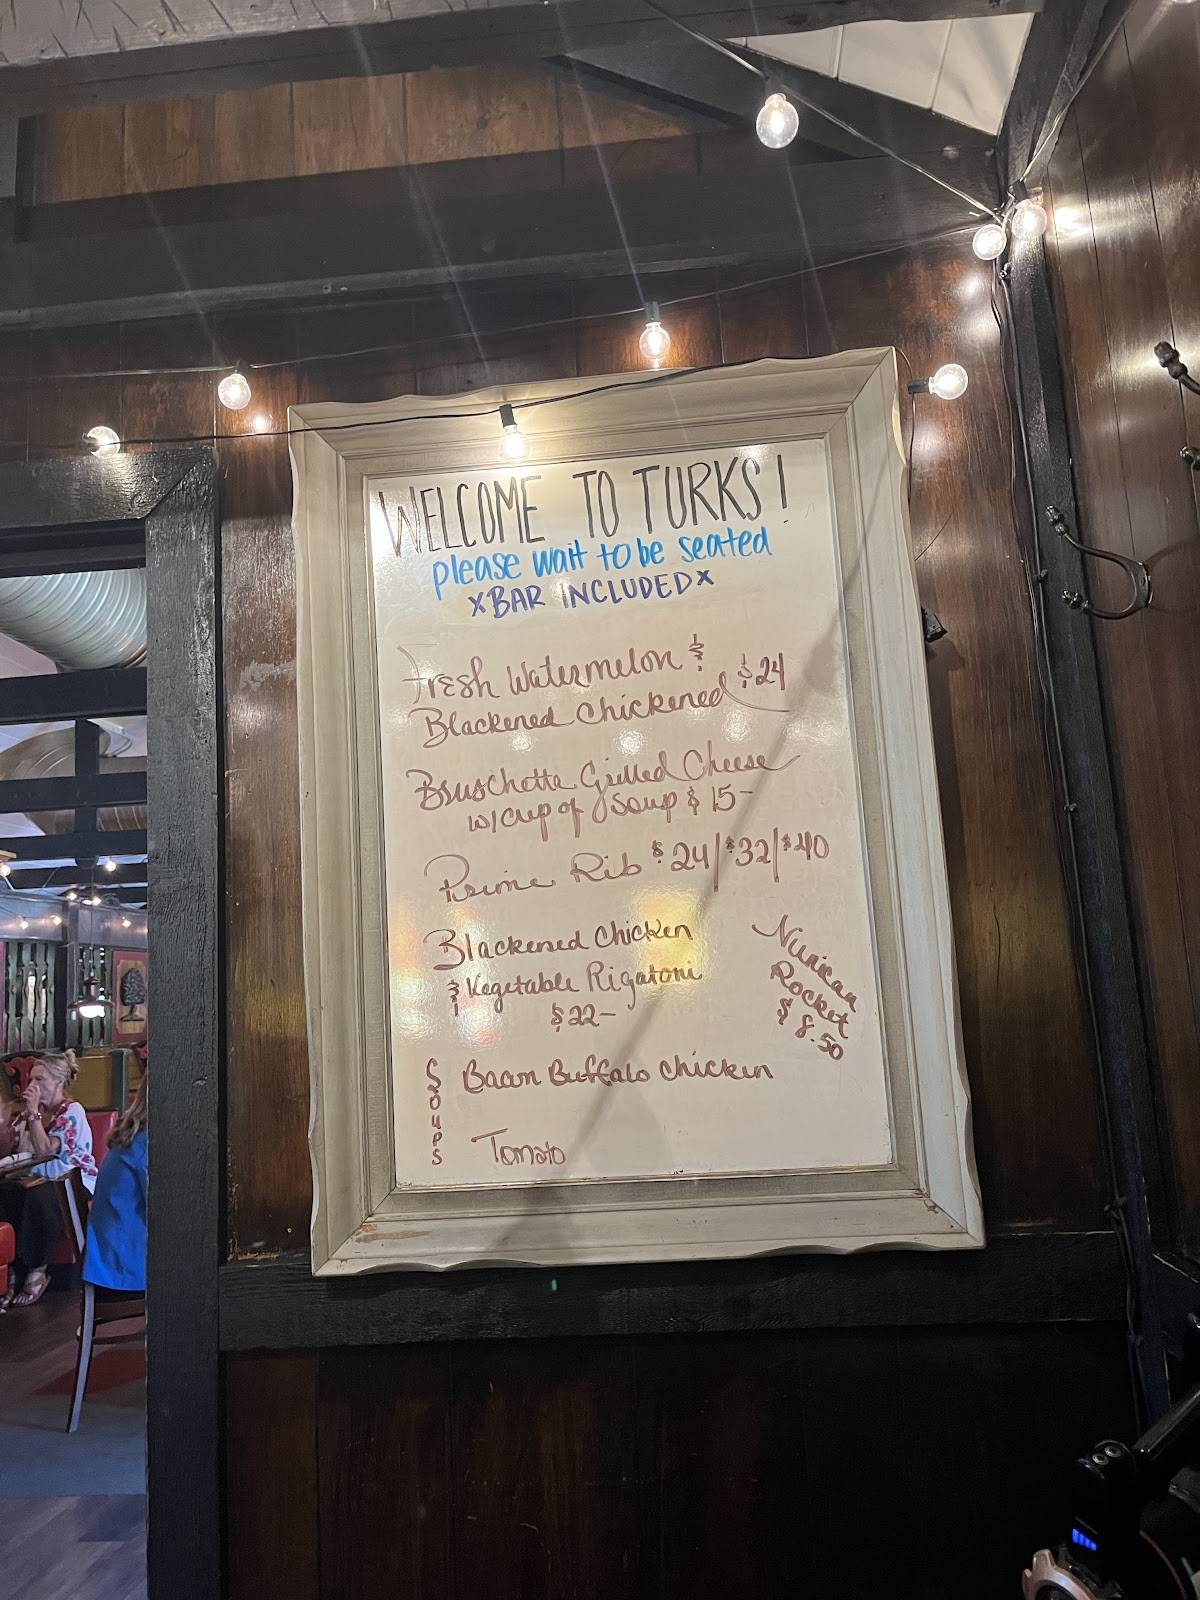 WELCOME TO TURKS!
please wait to be seated
xBAR INCLUDEDx
Fresh Watermelon &
Blackened Chickened $24
Bruschetta Grilled Cheese
w/ cup of Soup $15-
Prime Rib $24/$32/$40
Blackened Chicken
& Vegetable Rigatoni
$22-
Nunican
Rocket
$8.50
SOUPS
Bacon Buffalo Chicken
Tomato